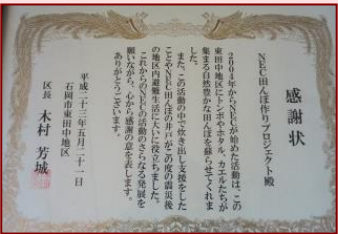 感謝状
NEC田んぼ作りプロジェクト殿
2004年からNECが始めた活動は、この
東田中地区にトンボやホタル、カエルたちが
集まる自然豊かな田んぼを蘇らせてくれま
した。
また、この活動の中で炊き出し支援をした
ことやNEC田んぼの井戸がこの度の震災後
の地区内避難生活に大いに役立ちました。
これからのNECの活動のさらなる発展を
願いながら、心から感謝の意を表します。
ありがとうございます。
平成二十三年五月二十一日
石岡市東田中地区
区長 木村 芳城